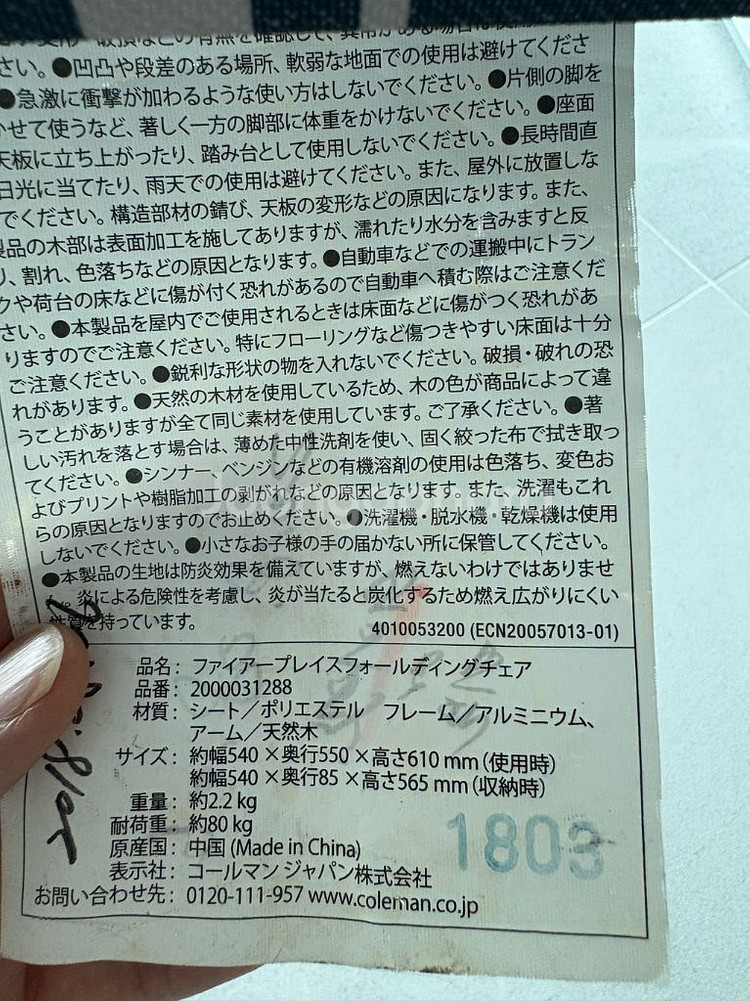 さい。●凹凸や段差のある場所、軟弱な地面での使用は避けてくださ
●急激に衝撃が加わるような使い方はしないでください。●片側の脚を
せて使うなど、著しく一方の脚部に体重をかけないでください。●座面
天板に立ち上がったり、踏み台として使用しないでください。●長時間直
日光に当てたり、雨天での使用は避けてください。また、屋外に放置しな
でください。構造部材の錆び、天板の変形などの原因になります。また、
製品の木部は表面加工を施してありますが、濡れたり水分を含みますと反
り、割れ、色落ちなどの原因となります。●自動車などでの運搬中にトラン
クや荷台の床などに傷が付く恐れがあるので自動車へ積む際はご注意くだ
さい。●本製品を屋内でご使用されるときは床面などに傷がつく恐れがあ
りますのでご注意ください。特にフローリングなど傷つきやすい床面は十分
ご注意ください。●鋭利な形状の物を入れないでください。破損・破れの恐
れがあります。●天然の木材を使用しているため、木の色が商品によって違
うことがありますが全て同じ素材を使用しています。ご了承ください。●著
しい汚れを落とす場合は、薄めた中性洗剤を使い、固く絞った布で拭き取っ
てください。●シンナー、ベンジンなどの有機溶剤の使用は色落ち、変色お
よびプリントや樹脂加工の剥がれなどの原因となります。また、洗濯もこれ
らの原因となりますのでお止めください。●洗濯機・脱水機・乾燥機は使用
しないでください。●小さなお子様の手の届かない所に保管してください。
●本製品の生地は防炎効果を備えていますが、燃えないわけではありませ
ん。炎による危険性を考慮し、炎が当たると炭化するため燃え広がりにくい
性質を持っています。
4010053200 (ECN20057013-01)
品名：ファイアープレイスフォールディングチェア
品番：2000031288
材質：シート／ポリエステル　フレーム／アルミニウム、
アーム／天然木
サイズ：約幅540×奥行550×高さ610 mm（使用時）
約幅540×奥行85×高さ565 mm（収納時）
重量：約2.2 kg
耐荷重：約80 kg
原産国：中国 (Made in China)
表示社：コールマン ジャパン株式会社
お問い合わせ先：0120-111-957 www.coleman.co.jp
1803